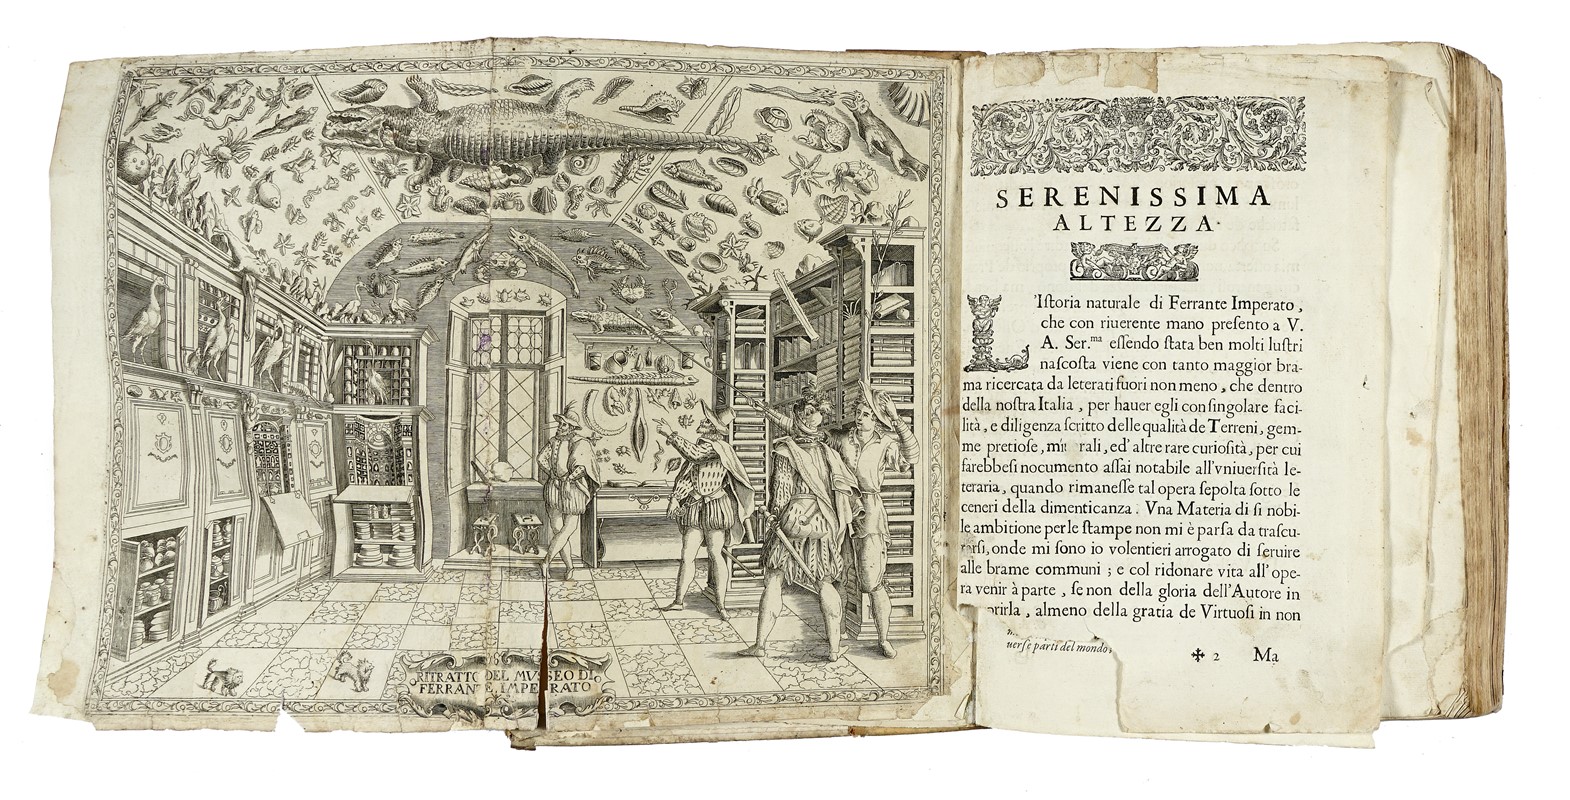 RITRATTO DEL MVSEO DI
FERRANTE IMPERATO
SERENISSIMA
ALTEZZA.
L'Iſtoria naturale di Ferrante Imperato,
che con riuerente mano preſento a V.
A. Ser.ma eſſendo ſtata ben molti luſtri
naſcoſta viene con tanto maggior bra-
ma ricercata da leterati fuori non meno, che dentro
della noſtra Italia, per hauer egli con ſingolare faci-
lità, e diligenza ſcritto delle qualità de Terreni, gem-
me pretioſe, rali, ed' altre rare curioſità, per cui
farebbeſi nocumento aſſai notabile all'vniuerſità le-
teraria, quando rimaneſſe tal opera ſepolta ſotto le
ceneri della dimenticanza. Vna Materia di ſi nobi-
le ambitione per le ſtampe non mi è parſa da traſcu-
rarſi, onde mi ſono io volentieri arrogato di ſeruire
alle brame communi; e col ridonare vita all' ope-
ra venir à parte, ſe non della gloria dell'Autore in
prirla, almeno della gratia de Virtuoſi in non
uerſe parti del mondo;
✠ 2 Ma